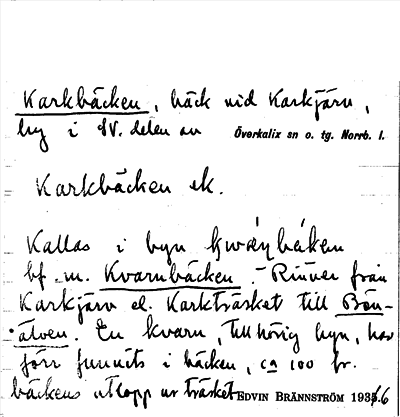 Karkbäcken, bäck vid Karkjärv,
by i SV. delen av Överkalix sn o. tg. Norrb. l.
Karkbäcken ek.
Kallas i byn
bf. m. Kvarnbäcken. Rinner från
Karkjärv el. Karkträsket till Bön-
älven. En kvarn, tillhörig byn, har
förr funnits i bäcken, ca 100 fr.
bäckens utlopp ur träsket EDVIN BRÄNNSTRÖM 1936